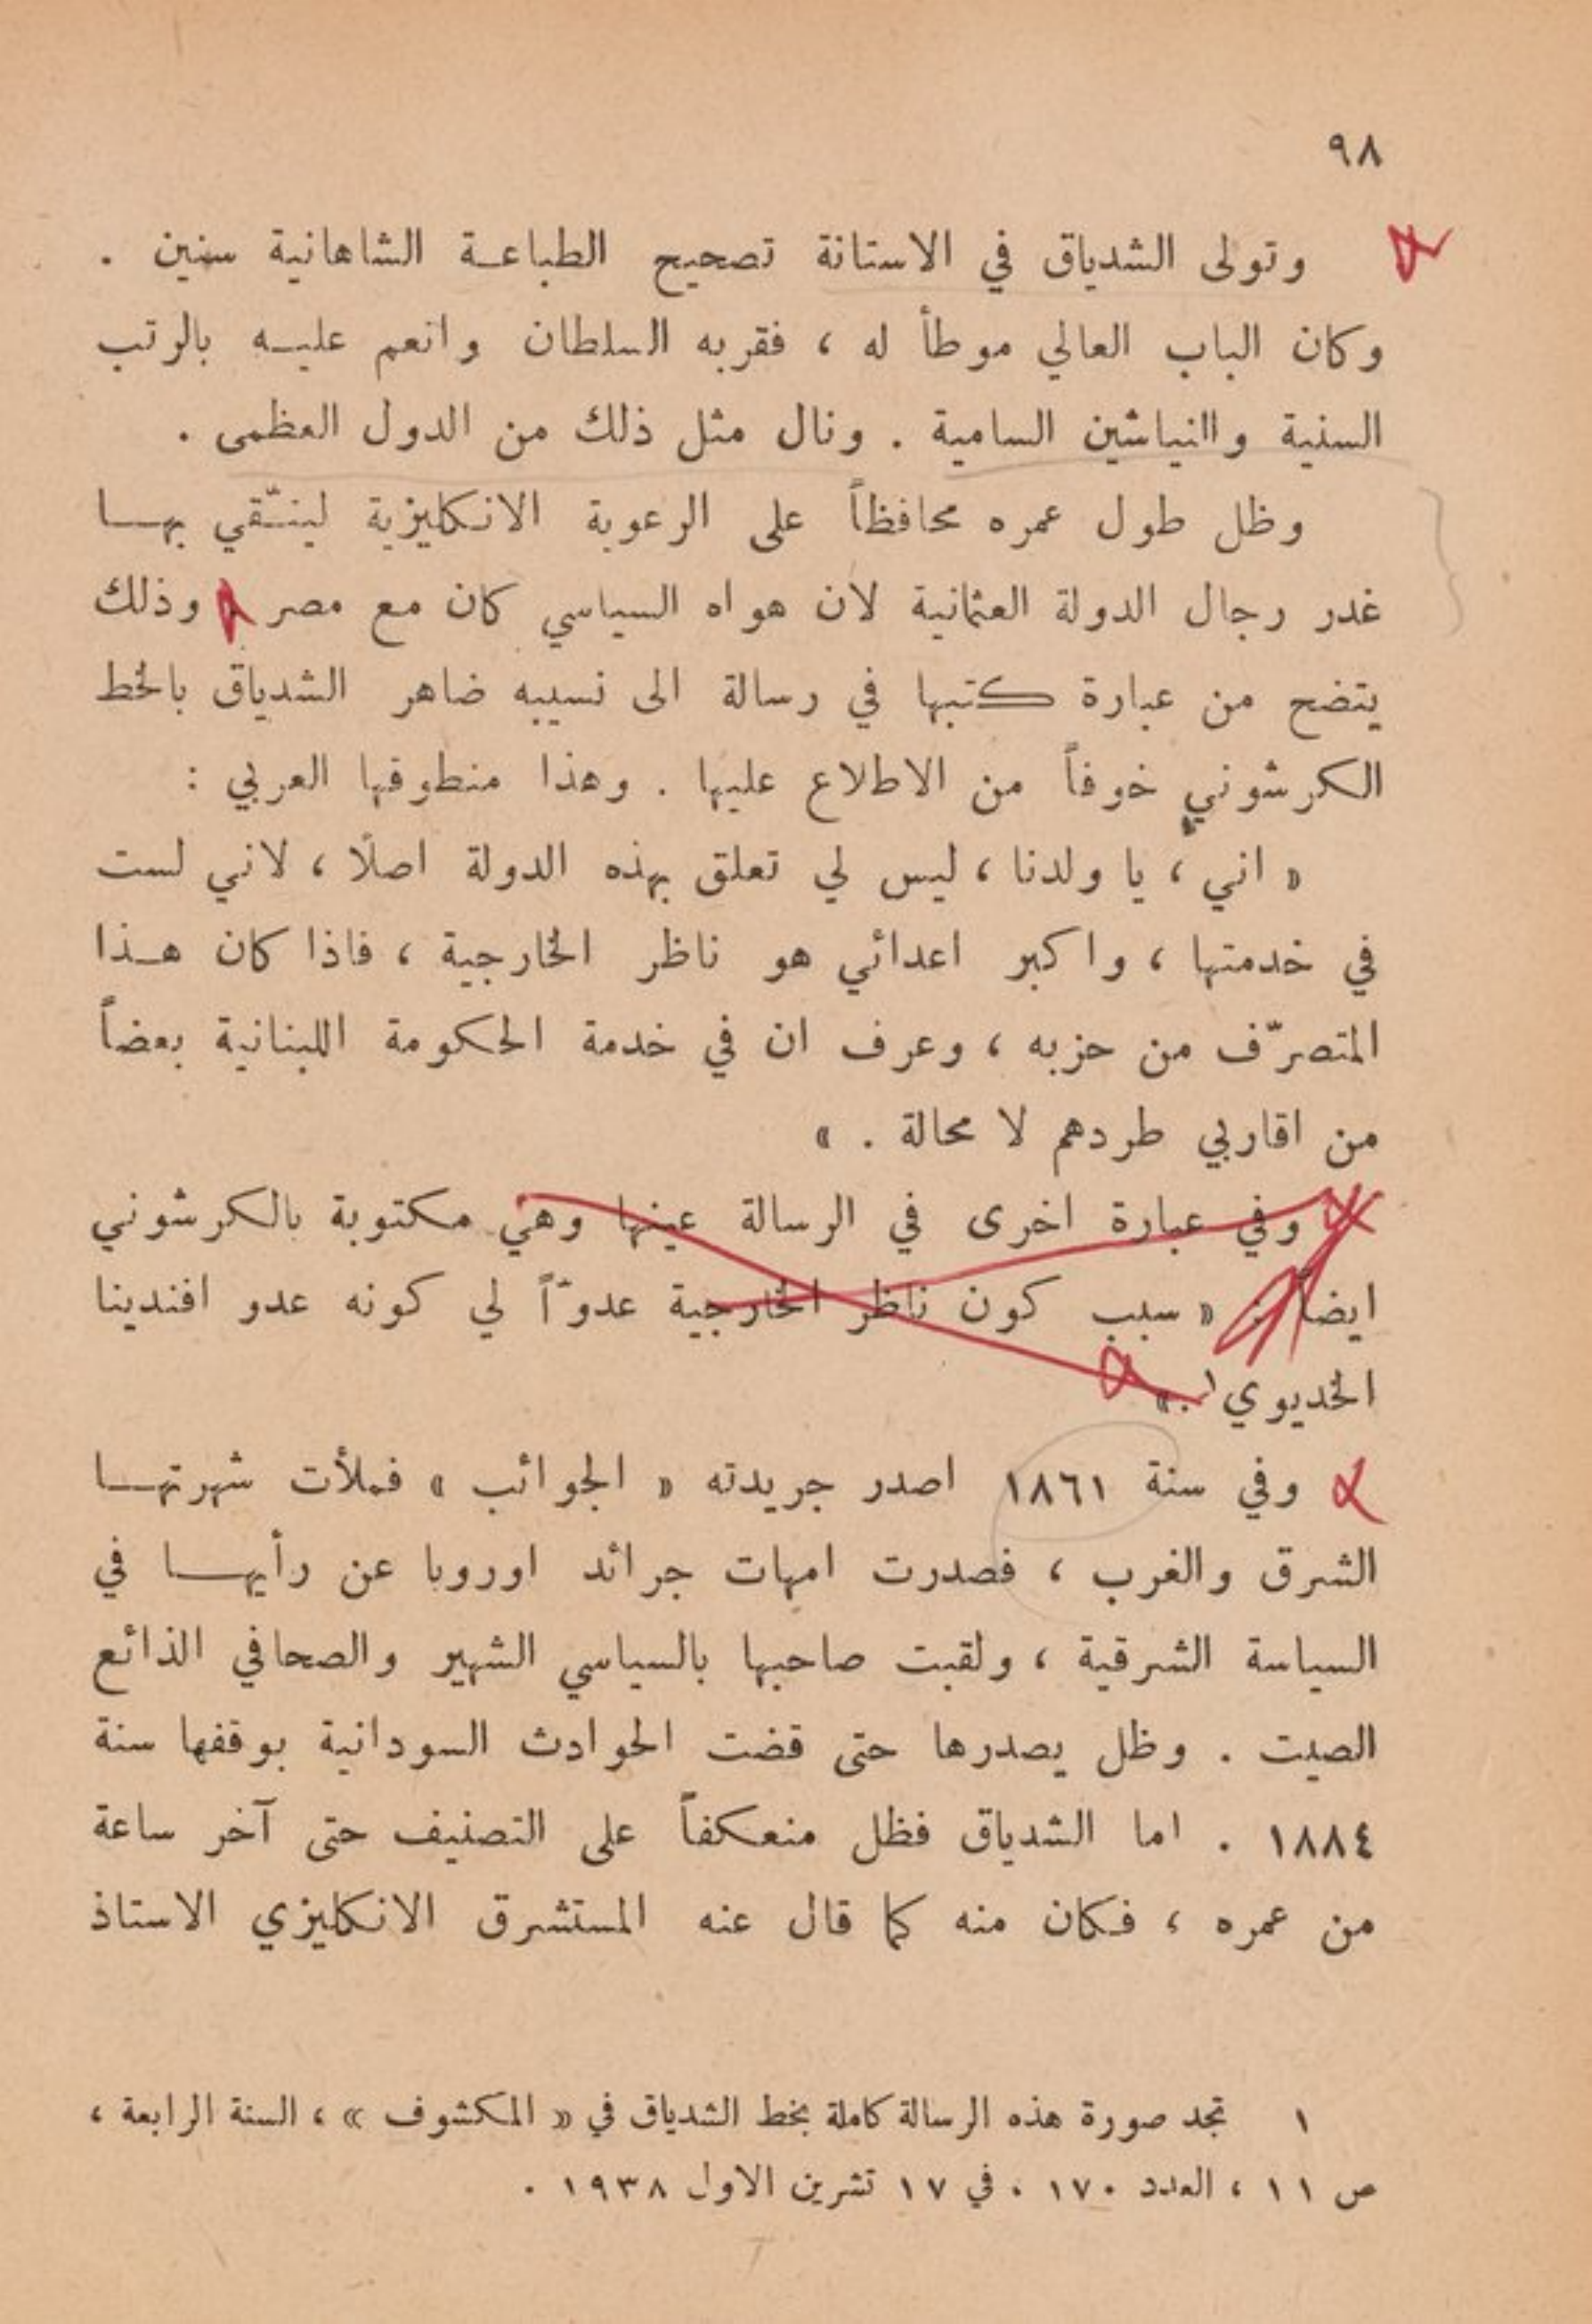 ٩٨
وتولى الشدياق في الاستانة تصحيح الطباعة الشاهانية سنين .
وكان الباب العالي موطأ له ، فقربه السلطان وانعم عليه بالرتب
السنية والنياشين السامية . ونال مثل ذلك من الدول العظمى .
وظل طول عمره محافظاً على الرعوية الانكليزية ليتّقي بها
غدر رجال الدولة العثمانية لان هواه السياسي كان مع مصر وذلك
يتضح من عبارة كتبها في رسالة الى نسيبه ضاهر الشدياق بالخط
الكرشوني خوفاً من الاطلاع عليها . وهذا منطوقها العربي :
« اني ، يا ولدنا ، ليس لي تعلق بهذه الدولة اصلًا ، لاني لست
في خدمتها ، واكبر اعدائي هو ناظر الخارجية ، فاذا كان هذا
المتصرّف من حزبه ، وعرف ان في خدمة الحكومة اللبنانية بعضاً
من اقاربي طردهم لا محالة . »
وفي عبارة اخرى في الرسالة عينها وهي مكتوبة بالكرشوني
ايضاً : « سبب كون ناظر الخارجية عدوّاً لي كونه عدو افندينا
الخديوي١ . »
وفي سنة ١٨٦١ اصدر جريدته « الجوائب » فملأت شهرتها
الشرق والغرب ، فصدرت امهات جرائد اوروبا عن رأيها في
السياسة الشرقية ، ولقبت صاحبها بالسياسي الشهير والصحافي الذائع
الصيت . وظل يصدرها حتى قضت الحوادث السودانية بوقفها سنة
١٨٨٤ . اما الشدياق فظل منعكفاً على التصنيف حتى آخر ساعة
من عمره ، فكان منه كما قال عنه المستشرق الانكليزي الاستاذ
١ تجد صورة هذه الرسالة كاملة بخط الشدياق في « المكشوف » ، السنة الرابعة ،
ص ١١ ، العدد ١٧٠ . في ١٧ تشرين الاول ١٩٣٨ .